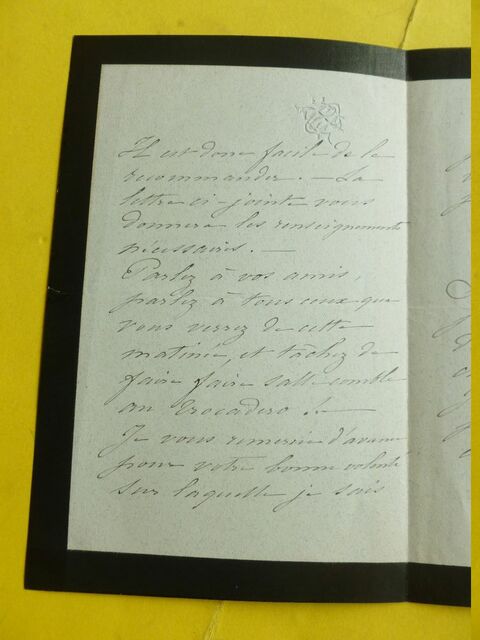 Il est donc facile de le
recommander. — La
lettre ci-jointe vous
donnera les renseignements
nécessaires. —
Parlez à vos amis,
parlez à tous ceux que
vous verrez de cette
matinée, et tâchez de
faire faire salle comble
au Trocadéro. —
Je vous remercie d'avance
pour votre bonne volonté
sur laquelle je sais